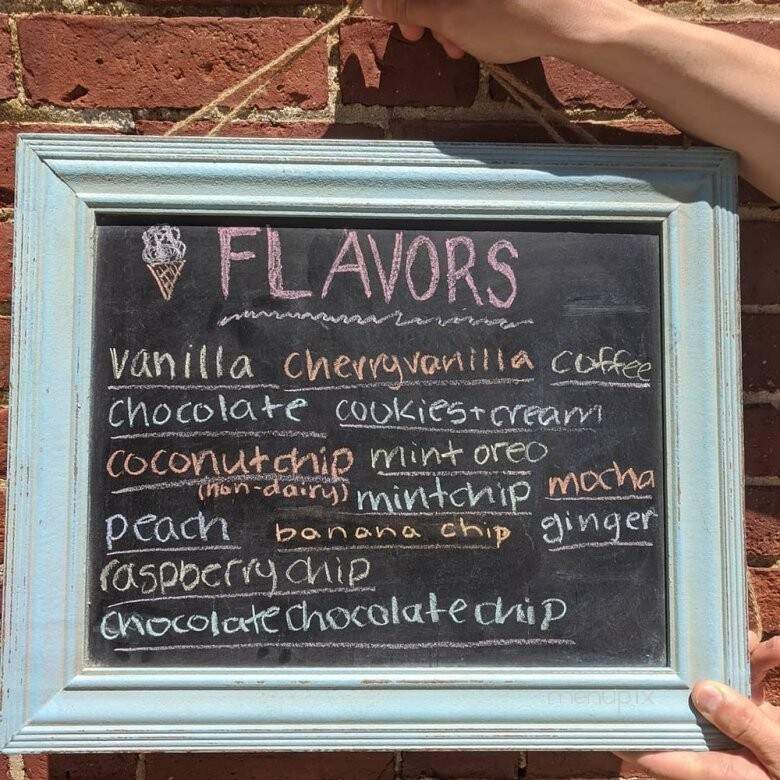 FLAVORS
vanilla cherry vanilla coffee
chocolate cookies + cream
coconut chip mint oreo
(non-dairy) mint chip mocha
peach banana chip ginger
raspberry chip
chocolate chocolate chip
menupix